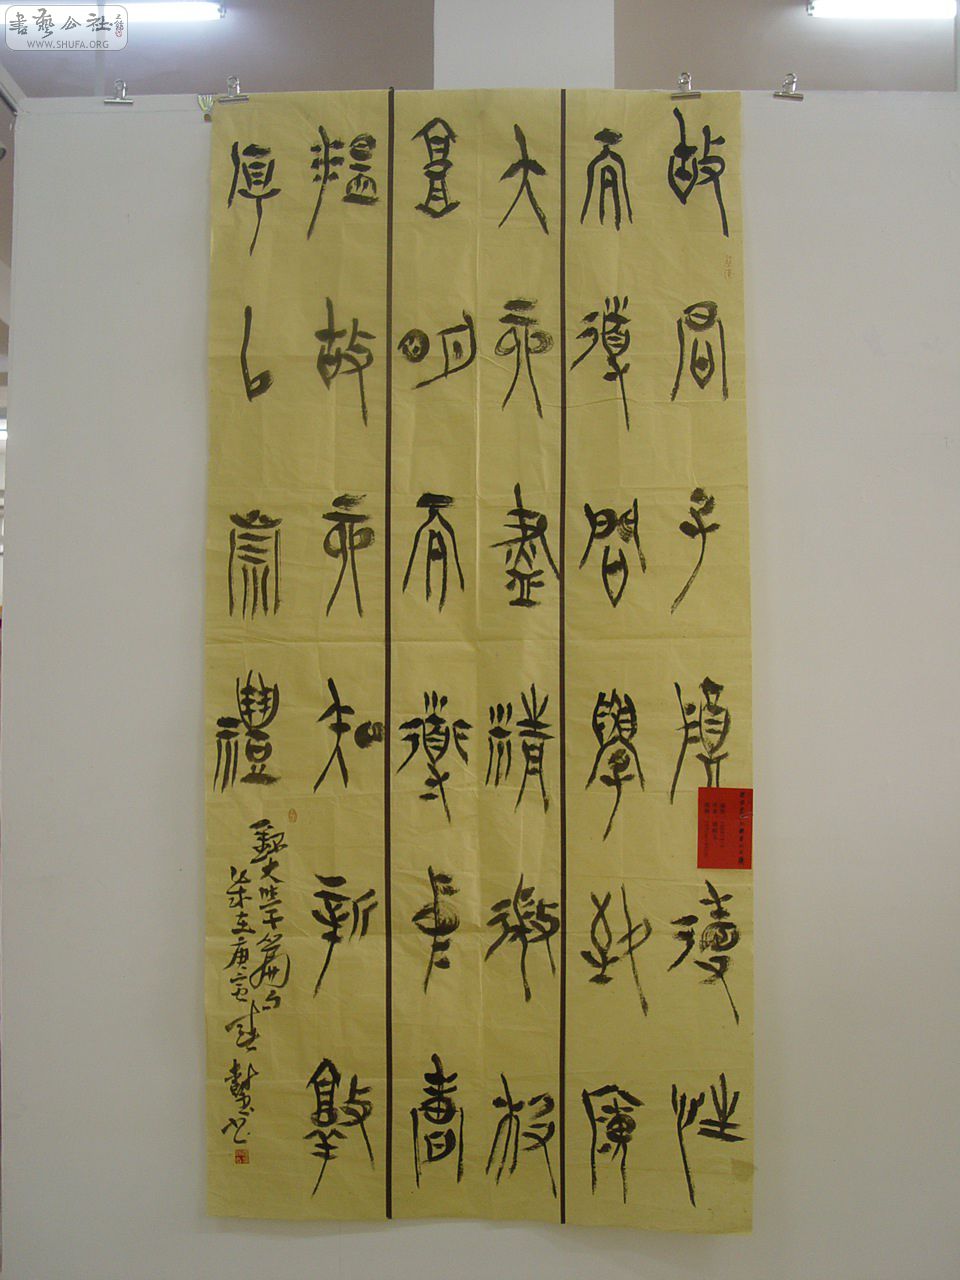 書藝公社
WWW.SHUFA.ORG
故君子尊德性
而道問學致廣
大而盡精微極
高明而道中庸
溫故而知新敦
厚以崇禮
歲在庚寅